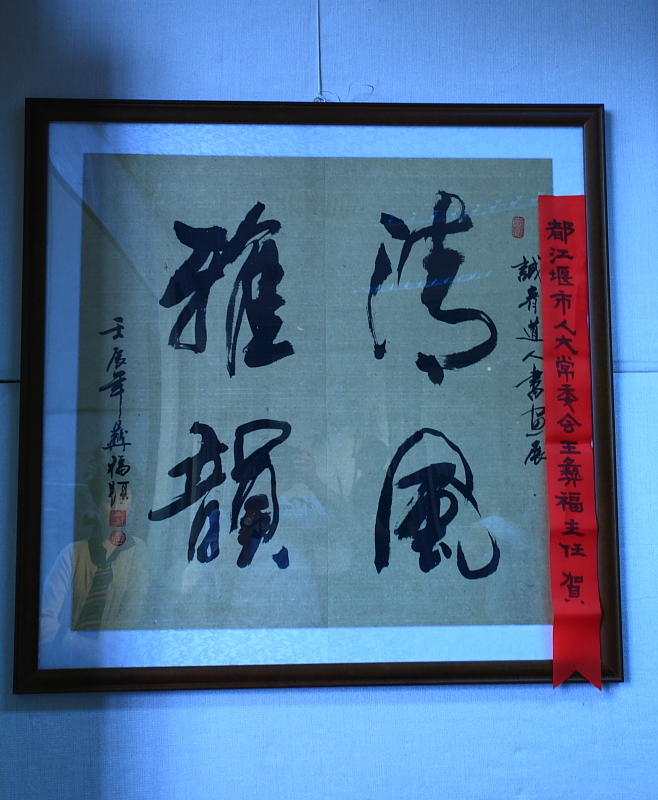 都江堰市人大常委会王彝福主任 贺
誠青道人書畫展
清風
雅韻
壬辰年 彝福題